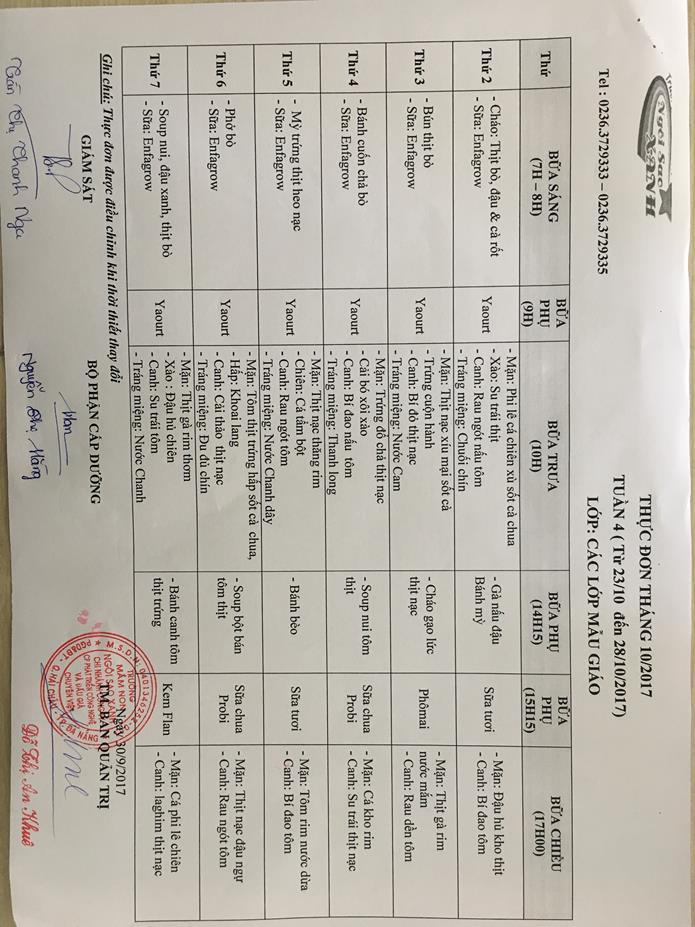 Ngôi Sao
XANH
Tel : 0236.3729333 – 0236.3729335
THỰC ĐƠN THÁNG 10/2017
TUẦN 4 ( Từ 23/10 đến 28/10/2017)
LỚP: CÁC LỚP MẪU GIÁO
Thứ
BỮA SÁNG
(7H – 8H)
BỮA
PHỤ
(9H)
BỮA TRƯA
(10H)
BỮA PHỤ
(14H15)
BỮA
PHỤ
(15H15)
BỮA CHIỀU
(17H00)
Thứ 2
- Cháo: Thịt bò, đậu & cà rốt
- Sữa: Enfagrow
Yaourt
- Mặn: Phi lê cá chiên xù sốt cà chua
- Xào: Su trái thịt
- Canh: Rau ngót nấu tôm
- Tráng miệng: Chuối chín
- Gà nấu đậu
Bánh mỳ
Sữa tươi
- Mặn: Đậu hủ kho thịt
- Canh: Bí đao tôm
Thứ 3
- Bún thịt bò
- Sữa: Enfagrow
Yaourt
- Mặn: Thịt nạc xíu mại sốt cà
- Trứng cuộn hành
- Canh: Bí đỏ thịt nạc
- Tráng miệng: Nước Cam
- Cháo gạo lức
thịt nạc
Phômai
- Mặn: Thịt gà rim
nước mắm
- Canh: Rau dền tôm
Thứ 4
- Bánh cuốn chả bò
- Sữa: Enfagrow
Yaourt
- Mặn: Trứng đổ chả thịt nạc
- Cải bó xôi xào
- Canh: Bí đao nấu tôm
- Tráng miệng: Thanh long
- Soup nui tôm
thịt
Sữa chua
Probi
- Mặn: Cá kho rim
- Canh: Su trái thịt
Thứ 5
- Mỳ trứng thịt heo nạc
- Sữa: Enfagrow
Yaourt
- Mặn: Thịt nạc thăng rim
- Chiên: Cá tẩm bột
- Canh: Rau ngót tôm
- Tráng miệng: Nước Chanh dây
- Bánh bèo
Sữa tươi
- Mặn: Tôm rim nước dừa
- Canh: Bí đao tôm
Thứ 6
- Phở bò
- Sữa: Enfagrow
Yaourt
- Mặn: Tôm thịt trứng hấp sốt cà chua,
- Hấp: Khoai lang
- Canh: Cải thảo thịt nạc
- Tráng miệng: Đu đủ chín
- Soup bột bán
tôm thịt
Sữa chua
Probi
- Mặn: Thịt nạc đậu ngự
- Canh: Rau ngót tôm
Thứ 7
- Soup nui, đậu xanh, thịt bò
- Sữa: Enfagrow
Yaourt
- Mặn: Thịt gà rim thơm
- Xào : Đậu hủ chiên
- Canh: Su trái tôm
- Tráng miệng: Nước Chanh
- Bánh canh tôm
thịt trứng
Kem Flan
- Mặn: Cá phi lê chiên
- Canh: laghim thịt nạc
Ghi chú: Thực đơn được điều chỉnh khi thời thiết thay đổi
Ngày 30/9/2017
GIÁM SÁT
BỘ PHẬN CẤP DƯỠNG
TM. BAN QUẢN TRỊ
TRƯỜNG
MẦM NON
NGÔI SAO XANH
CP PHÁT TRIỂN CÔNG NGHỆ
Nguyễn Thị Hằng
Đỗ Thị An Khuê